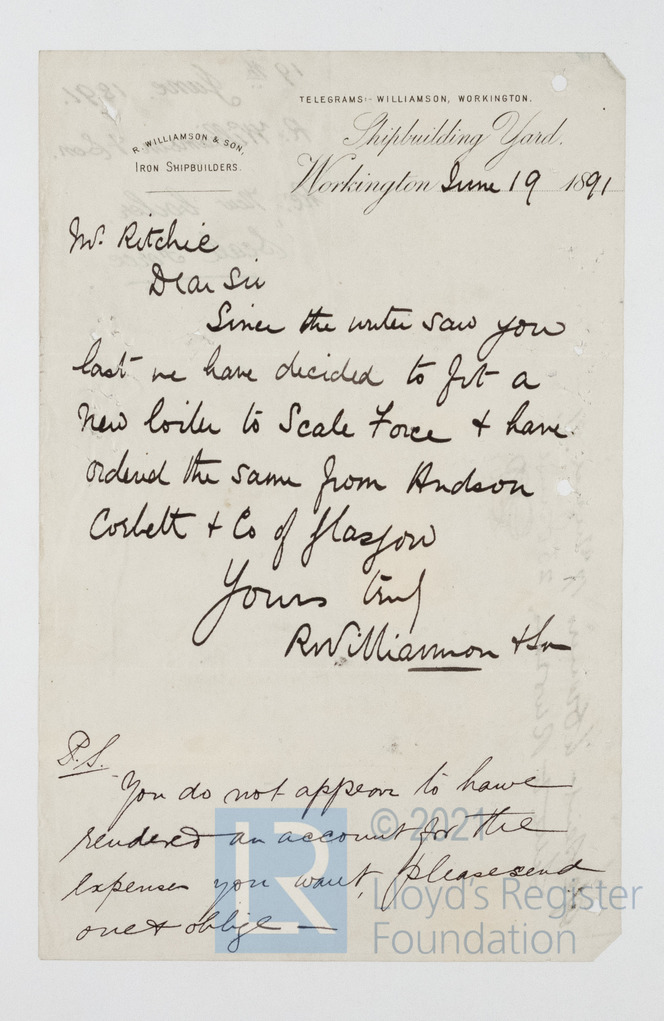 TELEGRAMS:- WILLIAMSON, WORKINGTON.
R. WILLIAMSON & SON,
IRON SHIPBUILDERS.
Shipbuilding Yard.
Workington June 19 1891
Mr. Ritchie
Dear Sir
Since the writer saw you
last we have decided to fit a
new boiler to Scale Force & have
ordered the same from Hudson
Corbett & Co of Glasgow
Yours truly
R Williamson & Son
P.S.
You do not appear to have
rendered an account for the
expenses you want, please send
one & oblige —
© 2021
LR
Lloyd's Register
Foundation